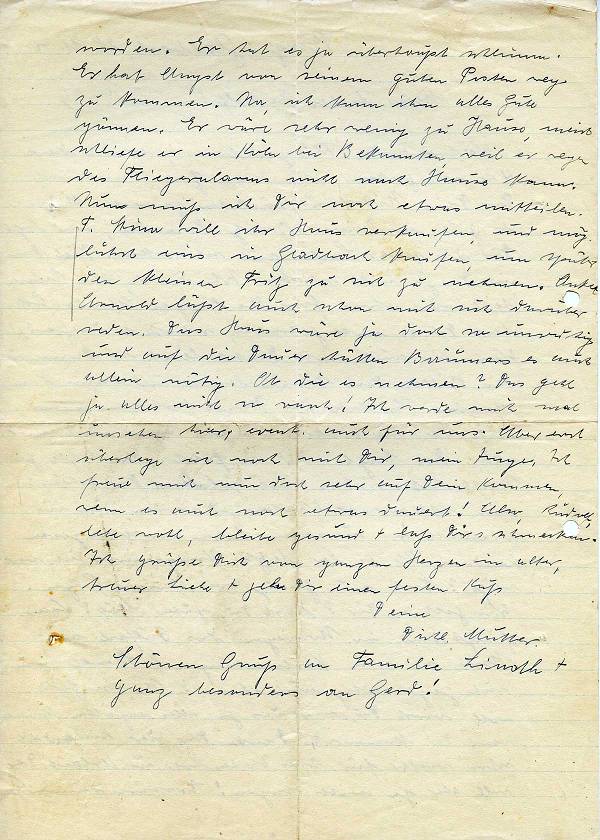 worden. Er hat es ja überhaupt schlimm.
Er hat Angst von seinem guten Posten weg
zu kommen. Na, ich kann ihm alles Gute
gönnen. Er wäre sehr wenig zu Hause, meist
schliefe er in Köln bei Bekannten, weil er wegen
des Fliegeralarms nicht nach Hause kann.
Nun muß ich Dir noch etwas mitteilen.
T. will ihr Haus verkaufen, und mög-
lichst eins in Gladbach kaufen, um später
den kleinen Fritz zu sich zu nehmen. Onkel
Arnold läßt auch schon mit sich darüber
reden. Das Haus wäre ja doch so unruhig
und auf die Dauer hätten Bräuners es auch
allein nötig. Ob die es nehmen? Das geht
ja alles nicht so rasch! Ich werde mich mal
umsehen hier, event. auch für uns. Aber erst
überlege ich noch mit Dir, mein Junge. Ich
freue mich nun doch sehr auf Dein Kommen,
wenn es auch noch etwas dauert! Also, Rudolf,
lebe wohl, bleibe gesund + laß Dir's schmecken.
Ich grüße Dich von ganzem Herzen in alter,
treuer Liebe + gebe Dir einen festen Kuß
Deine
Mutter.
Schönen Gruß an Familie +
Ganz besonders an Gerd!